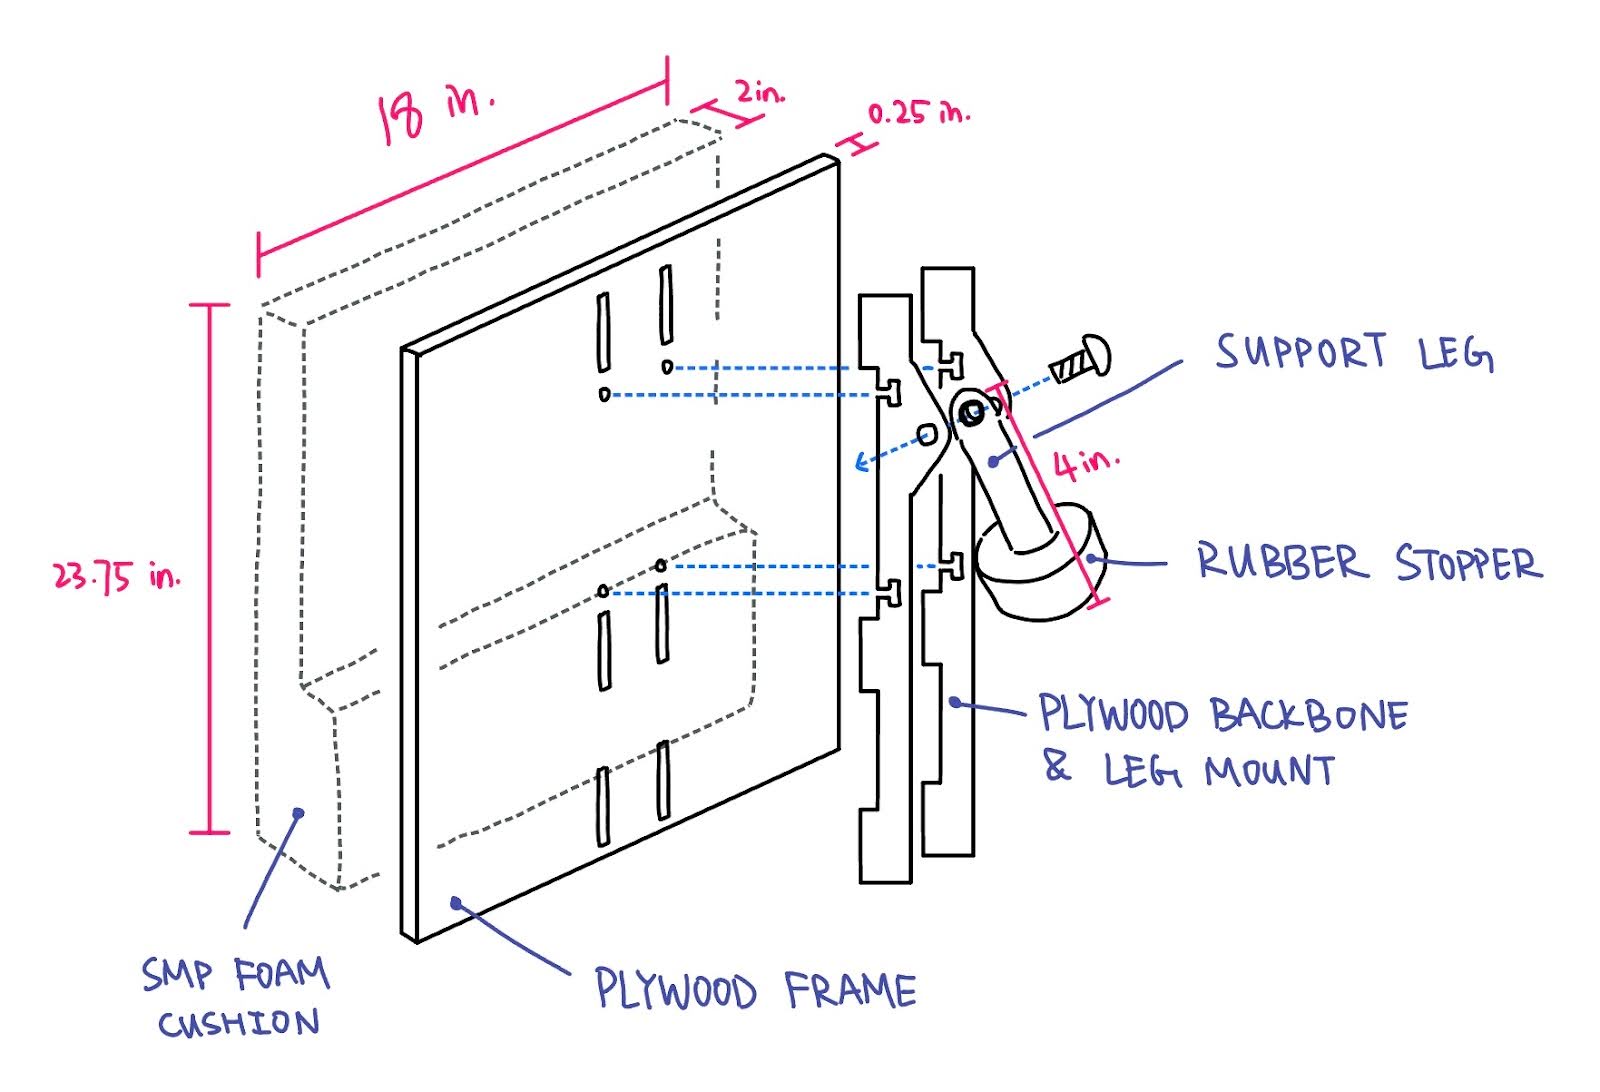 18 in.
2in.
0.25 in.
SUPPORT LEG
4in.
23.75 in.
RUBBER STOPPER
PLYWOOD BACKBONE
& LEG MOUNT
SMP FOAM
CUSHION
PLYWOOD FRAME